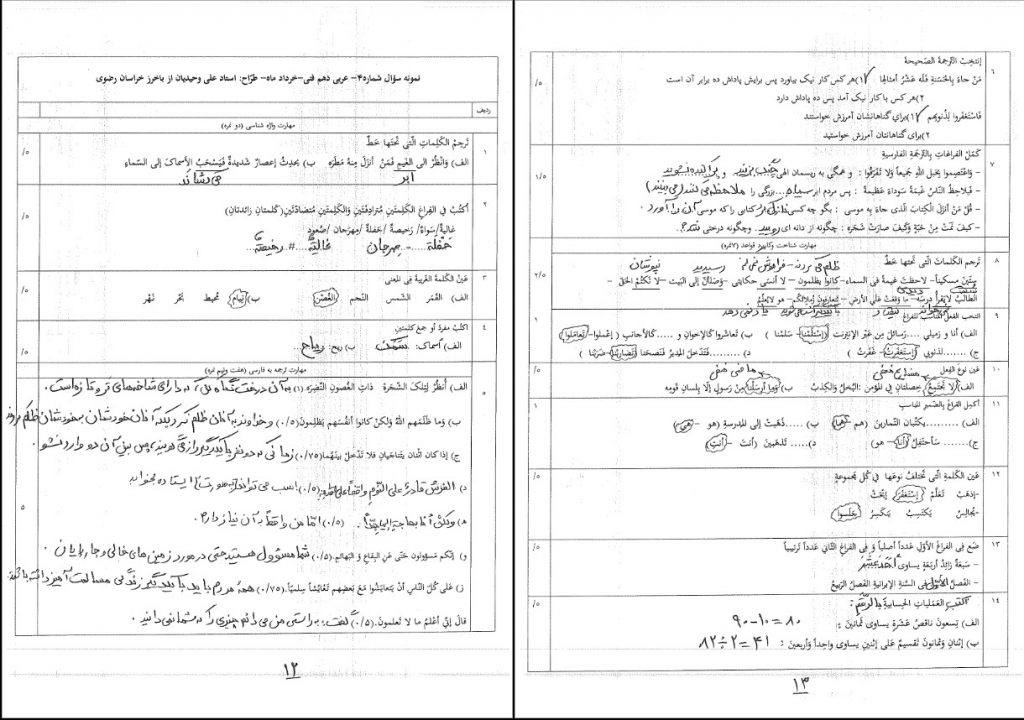 نمونه سؤال شماره۴- عربی دهم فنی-خرداد ماه- طرّاح: استاد علی وحیدیان از باخرز خراسان رضوی
ردیف
مهارت واژه شناسی (دو نمره)
۱
تَرجِمِ الكَلِماتِ الَّتي تَحتَها خَطٌّ
/۵
الف) وَانظُرْ الی الغَیمِ فَمَنْ أنزَلَ مِنهُ مَطَرَه ب) یَحدِثُ إعصارٌ شَدیدةٌ فَیَسْحَبُ الأسماكَ إلی السَّماءِ
ابر می‌کشاند
۲
اُكتُبْ فِي الفِراغِ الكَلِمَتَینِ المُتَرادِفَتَینِ وَالكَلِمَتَینِ المُتضادَّتَینِ(كَلَمتانِ زائدَتانِ)
/۵
غالیةٌ/سَواءٌ/ رَخیصةٌ/ حَفلةٌ /مِهرَجان /صُعود
حَفلة....= مهرجان غالیةٌ....≠ رخیصةٌ
۳
عَیِّنِ الكَلِمَةَ الغَریبةَ فِي المَعنی
/۵
الف) القَمَر الشَّمس النَّجم الغُصْن ب) نِیام مُحیط بَحْر نَهْر
۴
اكتُبْ مفردَ أو جمعَ كلمتینِ
/۵
الف) أسماك: سَمَک ب) ریح: ریاح
مهارت ترجمه به فارسی (هفت ونیم نمره)
۵
الف) اُنظُرْ لِتِلكَ الشَّجَرة ذاتِ الغُصونِ النَّضِرَه (۱) به آن درخت نگاه کن، که دارای شاخه‌های تر و تازه است.
ب) وَما ظَلَمَهم اللهُ وَلكنْ كانوا أنفُسَهم یَظلِمونَ(۰/۵) وخداوند به آنان ظلم نکرد بلکه آنان خودشان به خودشان ظلم کردند
ج) إذا كانَ اثْنانِ یَتناجَیانِ فَلا تَدخُلْ بینَهُما(۰/۷۵) زمانی که دو نفر با یکدیگر رازی گویند، پس بین آن دو وارد نشو.
د) الفَرَسُ قادرَةٌ علی النَّومِ واقفاً علی (۰/۵) اسب می تواند ایستاده بخوابد
۵
ه) ولكنْ أنا بحاجةٍ إلیها جِدّاً. (۰/۵) امّا من واقعاً به آن نیاز دارم.
و) إنَّكم مَسؤولونَ حَتّی عَنِ البِقاعِ وَ البَهائم.(۰/۵) شما مسؤول هستید حتی در مورد زمین های خالی و چارپایان.
ز) عَلی كُلِّ النّاسِ أنْ یَتعایَشُوا مَعَ بَعضِهِم تَعَایُشاً سِلمیّاً.(۰/۷۵) همه مردم باید با یکدیگر زندگی مسالمت آمیز داشته باشند.
قالَ إنّي أعْلَمُ ما لا تَعلمونَ.(۰/۵) گفت: به راستی من می دانم چیزی را که شما نمی دانید.
۱۲
۶
اِنتَخِبْ التَّرجمةَ الصَّحیحةَ
/۵
مَنْ جاءَ بِالحَسَنةِ فَلَه عَشْرُ أمثالِها ۱)هر کس کار نیک بیاورد پس برایش پاداش ده برابر آن است
۲)هر کس با کار نیک آمد پس ده پاداش دارد
فَاسْتَغفَروا لِذُنوبِهم ۱)برای گناهانشان آمرزش خواستند
۲)برای گناهانتان آمرزش خواستید
۷
كَمِّلْ الفَراغاتِ بِالتَّرجَمَةِ الفارسیةِ
۱/۵
- وَاعْتَصِموا بِحَبلِ اللهِ جَمیعاً وَلا تَفَرَّقوا : و همگی به ریسمان الهی چنگ بزنید و پراکنده نشوید
- فَیُلاحِظُ النّاسُ غَیمَةً سَوداءَ عَظیمَةً : پس مردم ابر سیاه... بزرگی را ملاحظه می کنند(می بینند)
- قُلْ مَنْ أنزَلَ الكِتابَ الّذی جاءَ بِهِ موسی : بگو چه کسی نازل کرد کتابی را که موسی آن را آورد.
- كَیفَ نَمَتْ مِنْ حَبَّةٍ وَكَیفَ صارَتْ شَجَرَه : چگونه از دانه ای رویید وچگونه درختی شد؟.
مهارت شناخت وکاربرد قواعد (۷نمره)
۸
تَرجِمِ الكَلماتِ الّتي تَحتَها خَطٌّ
۲/۵
سِتّینَ مِسكیناً- لاحظتُ غَیمةً فی السماء- كانوا یَظلِمونَ - لا أنسَی حكایتی - وَصَلْنَ إلی البَیت - لا تَكتُمْ الحَقَّ -
الطّالبُ لا یَقرأُ درسَهُ- ما وَقَعَتْ عَلی الأرضِ - تَتعاونونَ زُمَلائكم - هو لا یُعلِّمُ
۹
انتخب الفعلَ المناسبَ للفراغ
۱
الف) أنا و زمیلي ....رَسائلَ مِن عَبْرِ الإنترنت (إستَلَمْنا - سَلَّمنا ) ب) تَعاشَروا كالإخوانِ و ....كَالأجانبِ ( إعمَلوا- تَعامَلوا)
ج) .......لذنوبي (إستَغفَرتُ- غَفَرتُ ) د).......فَتَدَخَّلَ المُدیرُ فَنَصحَنا (تَضارَبْنا- ضَرَبْنا )
۱۰
عَیِّن نوعَ الفِعلِ
مضارع منفی ماضی
الف) لا تَجتَمِعُ خَصلتانِ في مُؤمنٍ: البُخلُ وَالكِذبُ ب) وَما أرسَلْنا مِنْ رَسولٍ إلّا بِلِسانِ قَومِه
۱۱
أكمِل الفَراغَ بِالضَّمیرِ المُناسبِ
۱
الف) .........یَكتُبانِ التَّمارینَ (هم -هُما) ب) .....ذَهَبَتْ إلی المدرسةِ (هو - هی)
ج)........سَأحتَفِلُ (أنا - هو) د)..... تَذهَبینَ (أنتَ - أنتِ)
۱۲
عَیِّن الكلمةَ الّتی تَختلفُ نوعَها في كُلِّ مجموعةٍ
/۵
-إذهَبْ تَعَلَّمْ إستَغفَرَ إبْحَثْ
-تُجالِسُ یَكتَسِبُ یَنكَسِرُ جَلَسوا
۱۳
ضَع فِي الفراغِ الأوّلِ عَدداً أصلیاً وَ فِي الفراغِ الثّاني عَدداً تَرتیبیاً
/۵
- سَبعَةٌ زائدُ أربَعَةٍ یساوی أحَدَ عَشَرَ
- الفَصلُ الأوّلُ فی السَّنةِ الإیرانیةِ الفَصلُ الرَّبیعُ
۱۴
اُكتُبِ العَمَلیاتِ الحِسابیةَ بِالرَّقَمِ:
/۵
الف) تِسعونَ ناقِصُ عَشَرةٍ یساوی ثَمانینَ :. ۹۰-۱۰=۸۰
ب) إثنانِ وَثَمانونَ تَقسیمٌ عَلی إثنَینِ یساوی واحِداً وَأربعینَ : ۸۲÷۲=۴۱
۱۳